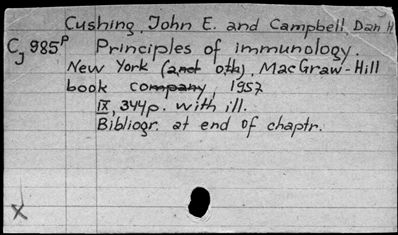 Cushing, John E. and Campbell, Dan H
CJ 985P Principles of immunology.
New York (and oth), MacGraw-Hill
book company, 1957
IX, 344p. with ill.
Bibliogr. at end of chaptr.
X